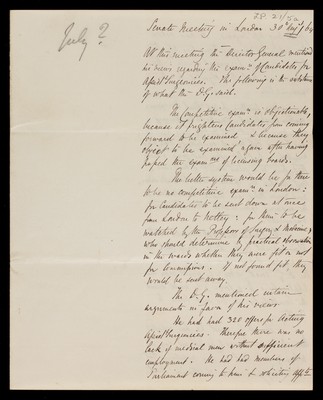 July?
Senate Meeting in London 30th Aug / 64
At this meeting the Director General mentioned
his views regarding the exam.n of Candidates for
Assist Surgeoncies. The following is the substance
of what the D.G. said.
The Competitive exam.n is objectionable,
because it frightens Candidates from coming
forward to be examined & because they
object to be examined again after having
passed the exam.ns of licensing boards.
The better system would be for there
to be no competitive exam.n in London:
for Candidates to be sent down at once
from London to Netley: for them to be
watched by the Professors of Surgery & Medicine,
who should determine by practical observation
in the wards whether they were fit or not
for Commissions. If not found fit, they
would be sent away.
The D.G. mentioned certain
arguments in favor of his views
He had had 320 offers for Acting
Assist Surgeoncies - therefore there was no
lack of medical men without sufficient
employment. He had had members of
Parliament coming to him & soliciting app.ts